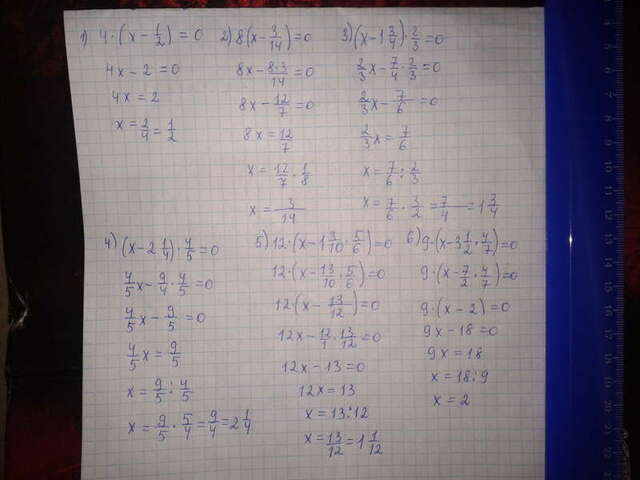 1) 4·(x − 1/2) = 0
4x − 2 = 0
4x = 2
x = 2/4 = 1/2
2) 8(x − 3/14) = 0
8x − 8·3/14 = 0
8x − 12/7 = 0
8x = 12/7
x = 12/7 · 1/8
x = 3/14
3) (x − 1 3/4)·2/3 = 0
2/3x − 7/4·2/3 = 0
2/3x − 7/6 = 0
2/3x = 7/6
x = 7/6 : 2/3
x = 7/6 · 3/2 = 7/4 = 1 3/4
4) (x − 2 1/4)·4/5 = 0
4/5x − 9/4·4/5 = 0
4/5x − 9/5 = 0
4/5x = 9/5
x = 9/5 : 4/5
x = 9/5 · 5/4 = 9/4 = 2 1/4
5) 12·(x − 1 3/10·5/6) = 0
12·(x − 13/10·5/6) = 0
12·(x − 13/12) = 0
12x − 12/1·13/12 = 0
12x − 13 = 0
12x = 13
x = 13:12
x = 13/12 = 1 1/12
6) 9·(x − 3 1/2·4/7) = 0
9·(x − 7/2·4/7) = 0
9·(x − 2) = 0
9x − 18 = 0
9x = 18
x = 18:9
x = 2